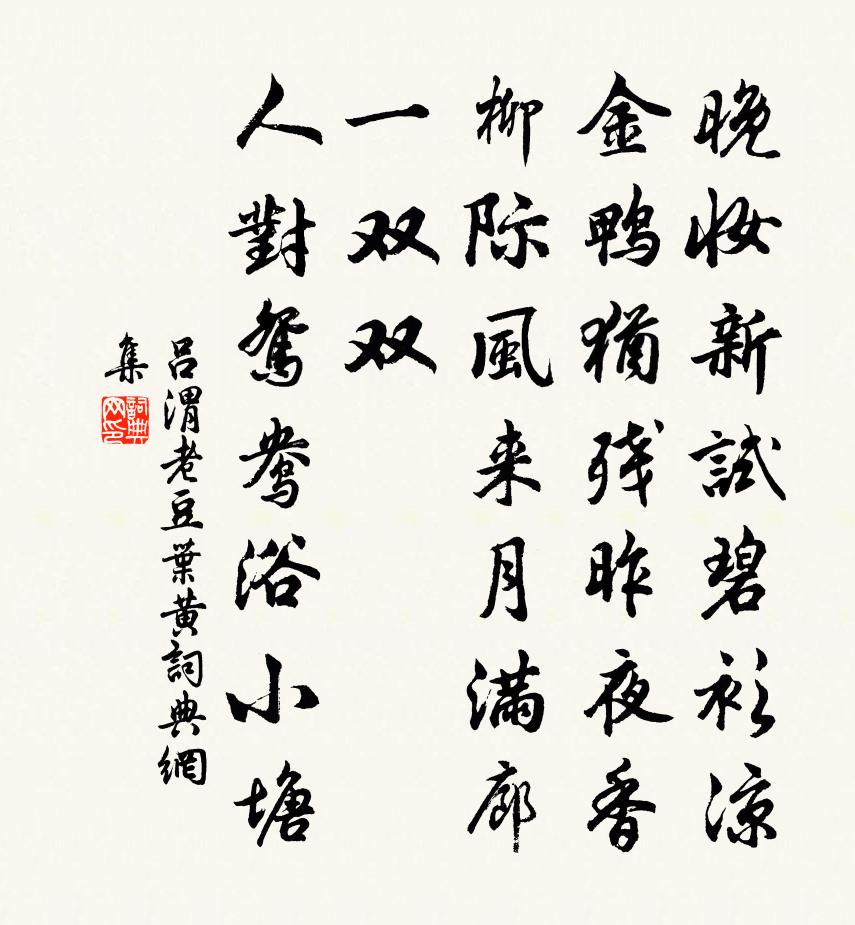 晚妆新試碧衫凉
金鴨猶残昨夜香
柳际風来月满廊
一双双
人對鴛鴦浴小塘
吕渭老豆葉黄詞典網
集
詞典网印